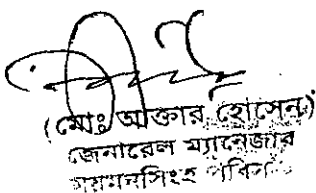 (মোঃ আক্তার হোসেন)
জেনারেল ম্যানেজার
ময়মনসিংহ পবিস